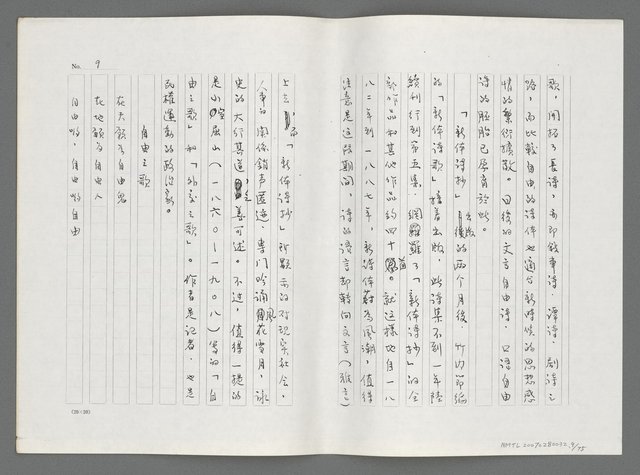 歌，開拓了長詩，亦即敘事詩．譚詩．劇詩之
路，而比較自由的詩体也適合新時候的思想感
情的繁衍擴散。日後的文言自由詩．口語自由
詩的胚胎已孕育於此。
「新体詩抄」出版後的兩个月後，竹内節編
的「新体詩歌」接着出版，此詩集不到一年陸
續刊行到第五集，網羅了「新体詩抄」的全
部作品和其他作品約四十首。就這樣地自一八
八二年到一八八七年，新詩体蔚為風潮，值得
注意是這段期間，詩的語言却轉向文言（雅言）
上去，「新体詩抄」所顯示的對現実社会，
人事的関係銷声匿迹，專門吟誦風花雪月，詠
史的大行其道，乏善可述。不过，值得一提的
是小室屈山（一八六〇ー一九〇八）寫的「自
由之歌」和「外交之歌」。作者是記者，也是
民權運動的政治家。
自由之歌
在天願為自由鬼
在地願為自由人
自由喲，自由喲自由
No. 9
(20×20)
NMTL20070280032_9/75